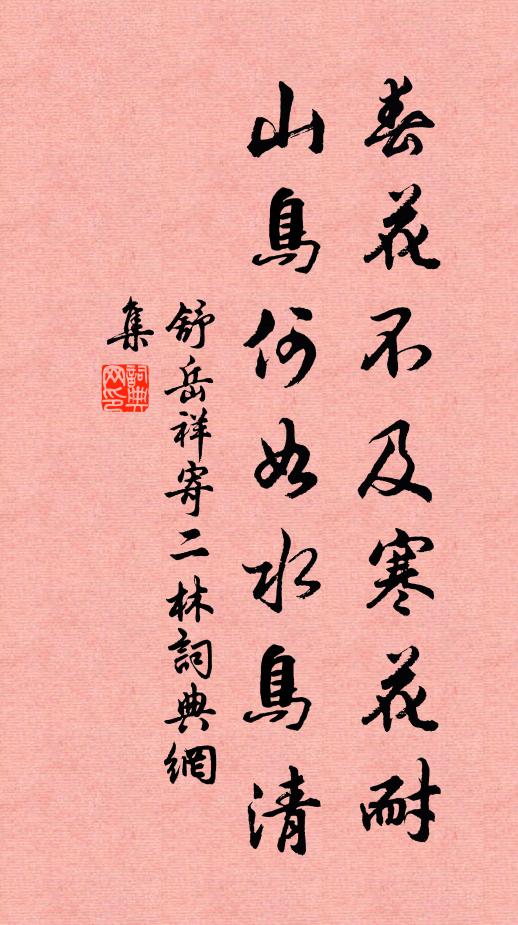 春花不及寒花耐
山鳥何如水鳥清
舒岳祥寄二林詞典網
集
詞典网印